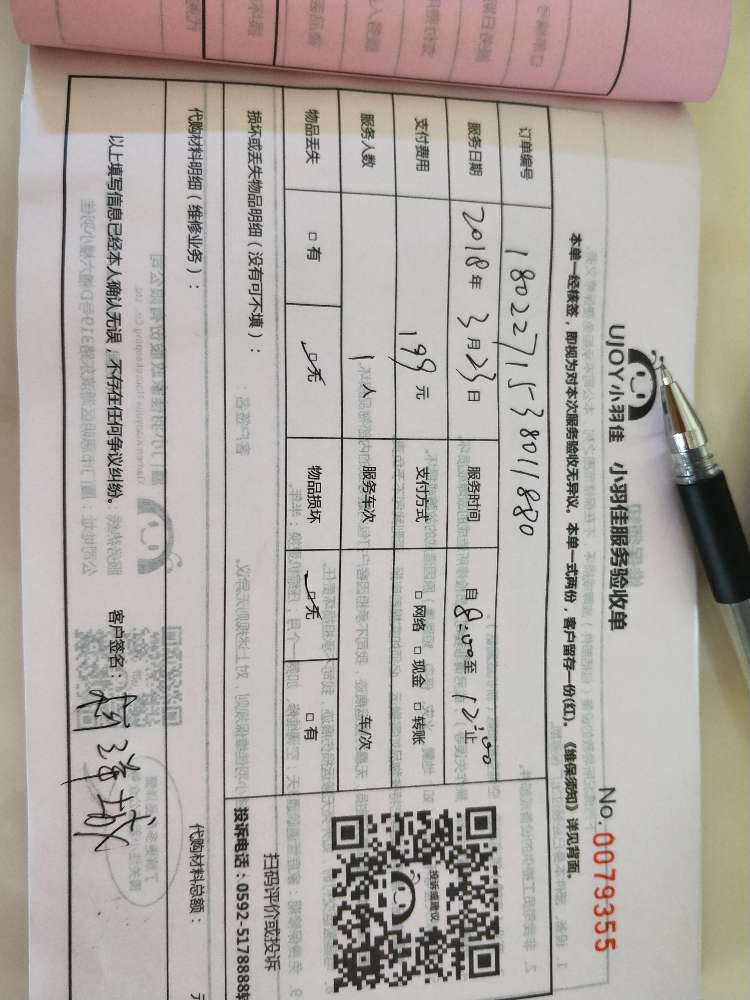 UJOY小羽佳 小羽佳服务验收单
No. 0079355
本单一经核签，即视为对本次服务验收无异议。本单一式两份，客户留存一份(红)。《维保须知》详见背面。
订单编号 180227153801880
服务日期 2018年3月23日 服务时间 自8:00至12:00止
支付费用 199元 支付方式 □网络 □现金 □转账
服务人数 1人 服务车次 车/次
物品丢失 □有 □无 物品损坏 □无 □有
损坏或丢失物品明细（没有可不填）：
投诉或建议
扫码评价或投诉
投诉电话：0592-5178888转
代购材料明细（维修业务）：
代购材料总额： 元
以上填写信息已经本人确认无误，不存在任何争议纠纷。 客户签名：